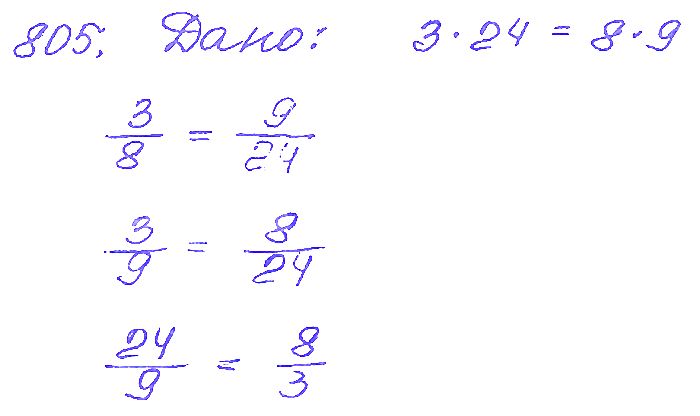 805. Дано: 3 · 24 = 8 · 9
3/8 = 9/24
3/9 = 8/24
24/9 = 8/3